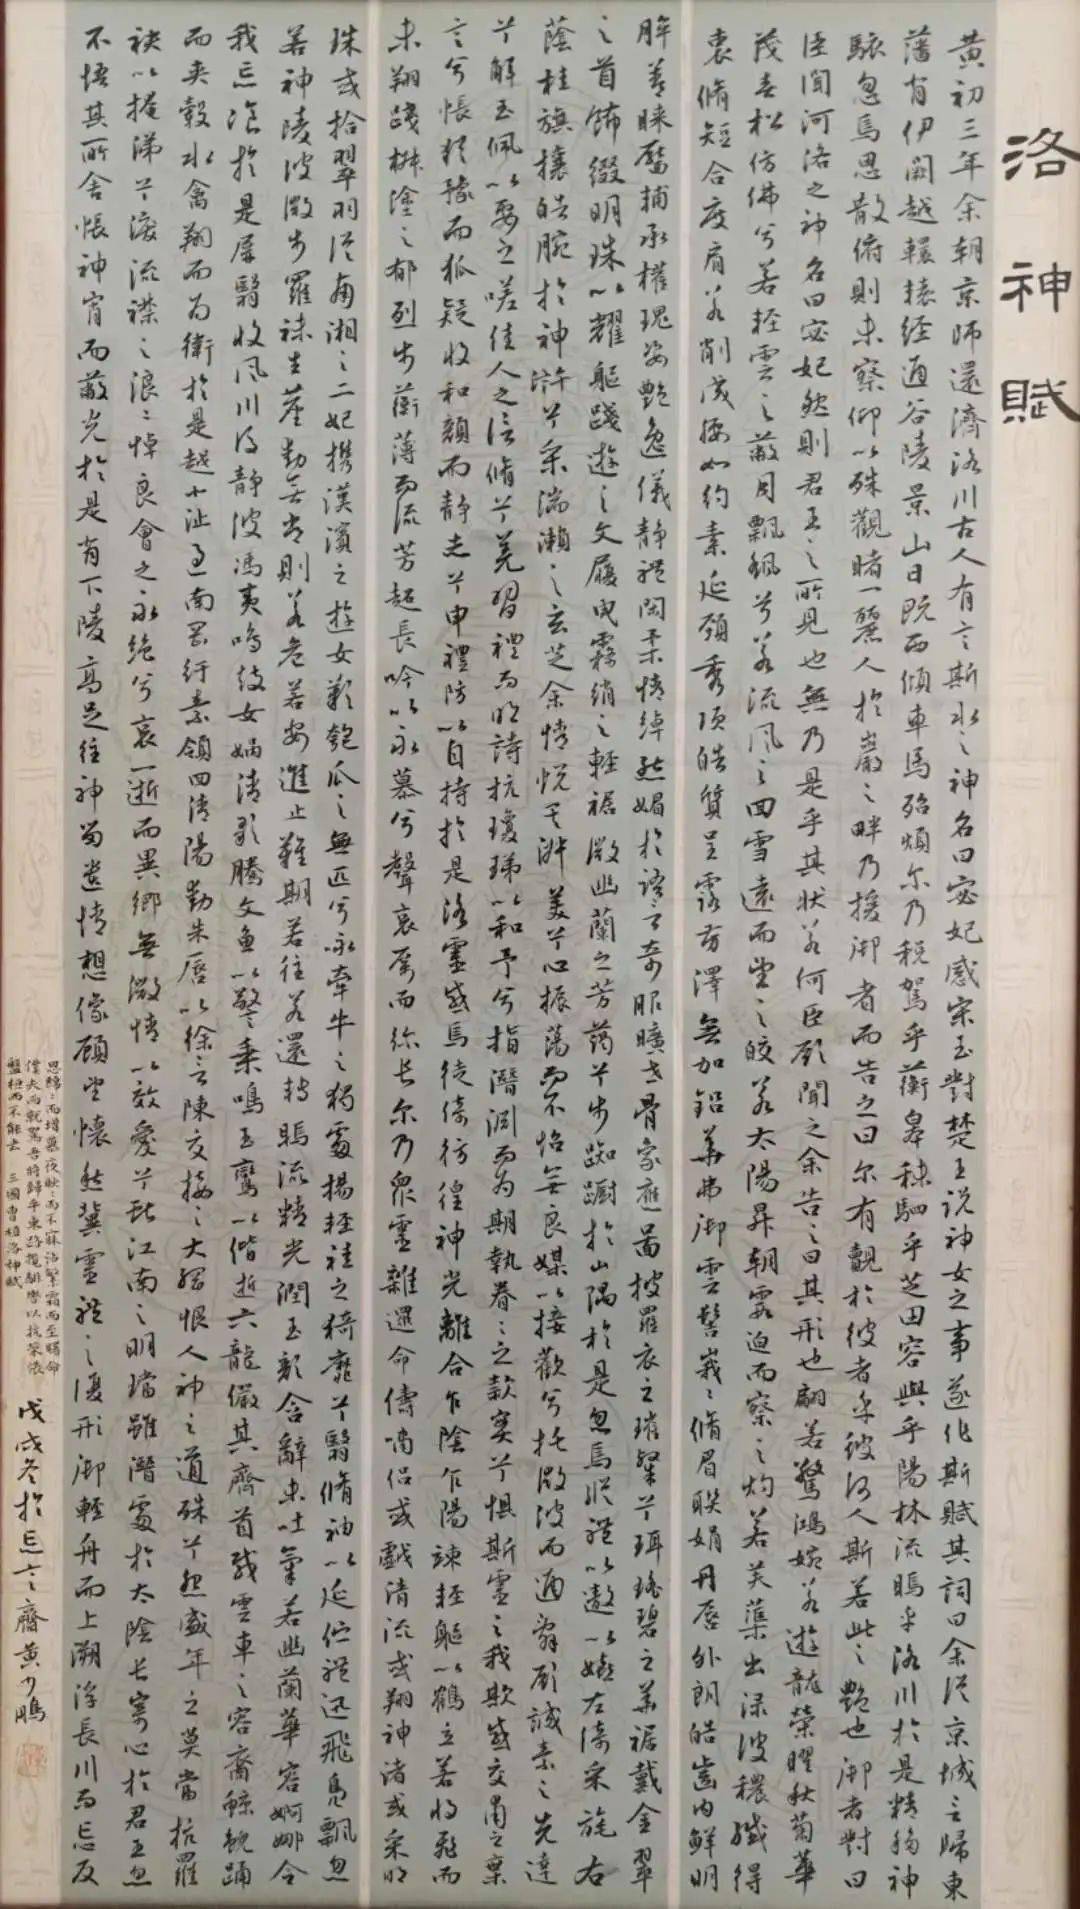 洛神賦
黄初三年余朝京師還濟洛川古人有言斯水之神名曰宓妃感宋玉對楚王說神女之事遂作斯賦其詞曰余從京域言歸東
藩背伊闕越轘轅經通谷陵景山日既西傾車馬殆煩尔乃稅駕乎蘅皋秣駟乎芝田容與乎陽林流眄乎洛川於是精移神
駭忽焉思散俯則未察仰以殊觀睹一麗人於巖之畔乃援御者而告之曰尔有覿於彼者乎彼何人斯若此之艷也御者對曰
臣聞河洛之神名曰宓妃然則君王之所見也無乃是乎其狀若何臣願聞之余告之曰其形也翩若驚鴻婉若遊龍榮曜秋菊華
茂春松仿佛兮若輕雲之蔽月飄飖兮若流風之回雪遠而望之皎若太陽昇朝霞迫而察之灼若芙蕖出淥波穠纖得
衷脩短合度肩若削成腰如約素延頸秀項皓質呈露芳澤無加鉛華弗御雲髻峩峩脩眉聯娟丹唇外朗皓齒内鮮明
眸善睞靨輔承權瑰姿艷逸儀靜體閑柔情綽態媚於語言奇服曠世骨象應圖披羅衣之璀粲兮珥瑤碧之華裾戴金翠
之首飾綴明珠以耀軀踐遊之文履曳霧綃之輕裾微幽蘭之芳藹兮步踟躕於山隅於是忽焉縱體以遨以嬉左倚采旄右
蔭桂旗攘皓腕於神滸兮采湍瀨之玄芝余情悅其淑美兮心振蕩而不怡無良媒以接歡兮托微波而通辭願誠素之先達
兮解玉佩以要之嗟佳人之信脩兮羌習禮而明詩抗瓊珶以和予兮指潛淵而為期執眷眷之款實兮懼斯靈之我欺感交甫之棄
言兮悵猶豫而狐疑收和顏而靜志兮申禮防以自持於是洛靈感焉徙倚彷徨神光離合乍陰乍陽竦輕軀以鶴立若将飛而
未翔踐椒塗之郁烈步蘅薄而流芳超長吟以永慕兮聲哀厲而弥長尔乃眾靈雜遝命儔嘯侶或戲清流或翔神渚或采明
珠或拾翠羽從南湘之二妃攜漢濱之遊女歎匏瓜之無匹兮詠牽牛之獨處揚輕袿之猗靡兮翳脩袖以延伫體迅飛鳧飄忽
若神陵波微步羅襪生塵動無常則若危若安進止難期若往若還轉眄流精光潤玉顏含辭未吐氣若幽蘭華容婀娜令
我忘飡於是屏翳收風川后靜波馮夷鳴鼓女媧清歌騰文魚以警乘鳴玉鸞以偕逝六龍儼其齊首載雲車之容裔鯨鯢踊
而夾轂水禽翔而為衛於是越北沚過南岡紆素領回清陽動朱唇以徐言陳交接之大綱恨人神之道殊兮怨盛年之莫當抗羅
袂以掩涕兮淚流襟之浪浪悼良會之永絕兮哀一逝而異鄉無微情以效愛兮献江南之明璫雖潛處於太陰長寄心於君王忽
不悟其所舍悵神宵而蔽光於是背下陵高足往神留遺情想像顧望懷愁冀靈體之復形御輕舟而上溯浮長川而忘反
思綿綿而增慕夜耿耿而不寐沾繁霜而至曙命
僕夫而就駕吾將歸乎東路攬騑轡以抗策悵
盤桓而不能去 三國曹植洛神賦
戊戌冬於忘言齋黄少鵬